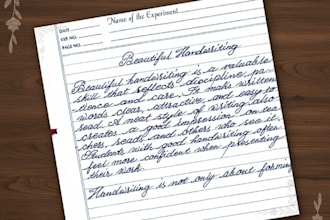 Name of the Experiment
DATE
EXP. NO.
PAGE NO.
Beautiful Handwriting
Beautiful handwriting is a valuable
skill that reflects discipline, pa-
tience and care. It makes written
words clear, attractive, and easy to
read. A neat style of writing also
creates a good impression on tea
chers, reads and others who see it.
Students with good handwriting often
feel more confident when presenting
their work.
Handwriting is not only about forming